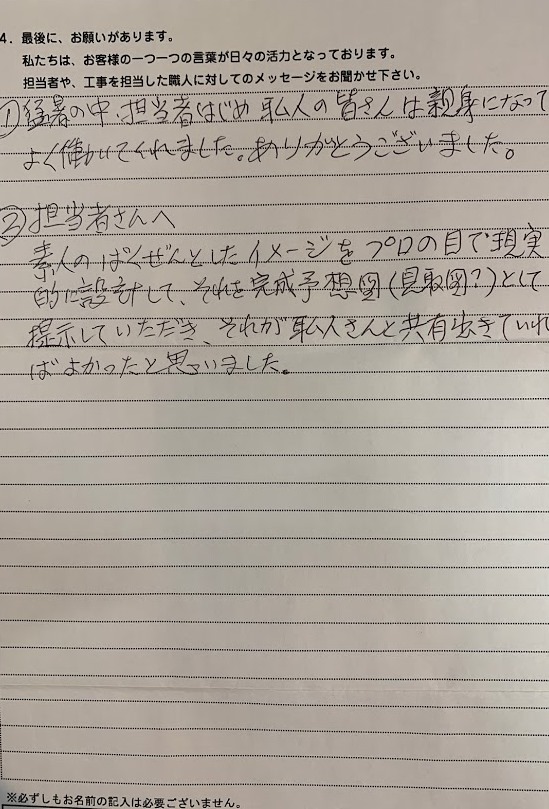 4. 最後に、お願いがあります。
私たちは、お客様の一つ一つの言葉が日々の活力となっております。
担当者や、工事を担当した職人に対してのメッセージをお聞かせ下さい。
①猛暑の中、担当者はじめ職人の皆さんは親身になって
よく働いてくれました。ありがとうございました。
②担当者さんへ
素人のばくぜんとしたイメージをプロの目で現実
的に設計して、それを完成予想図(見取図?)として
提示していただき、それが職人さんと共有出きていれ
ばよかったと思いました。
※必ずしもお名前の記入は必要ございません。